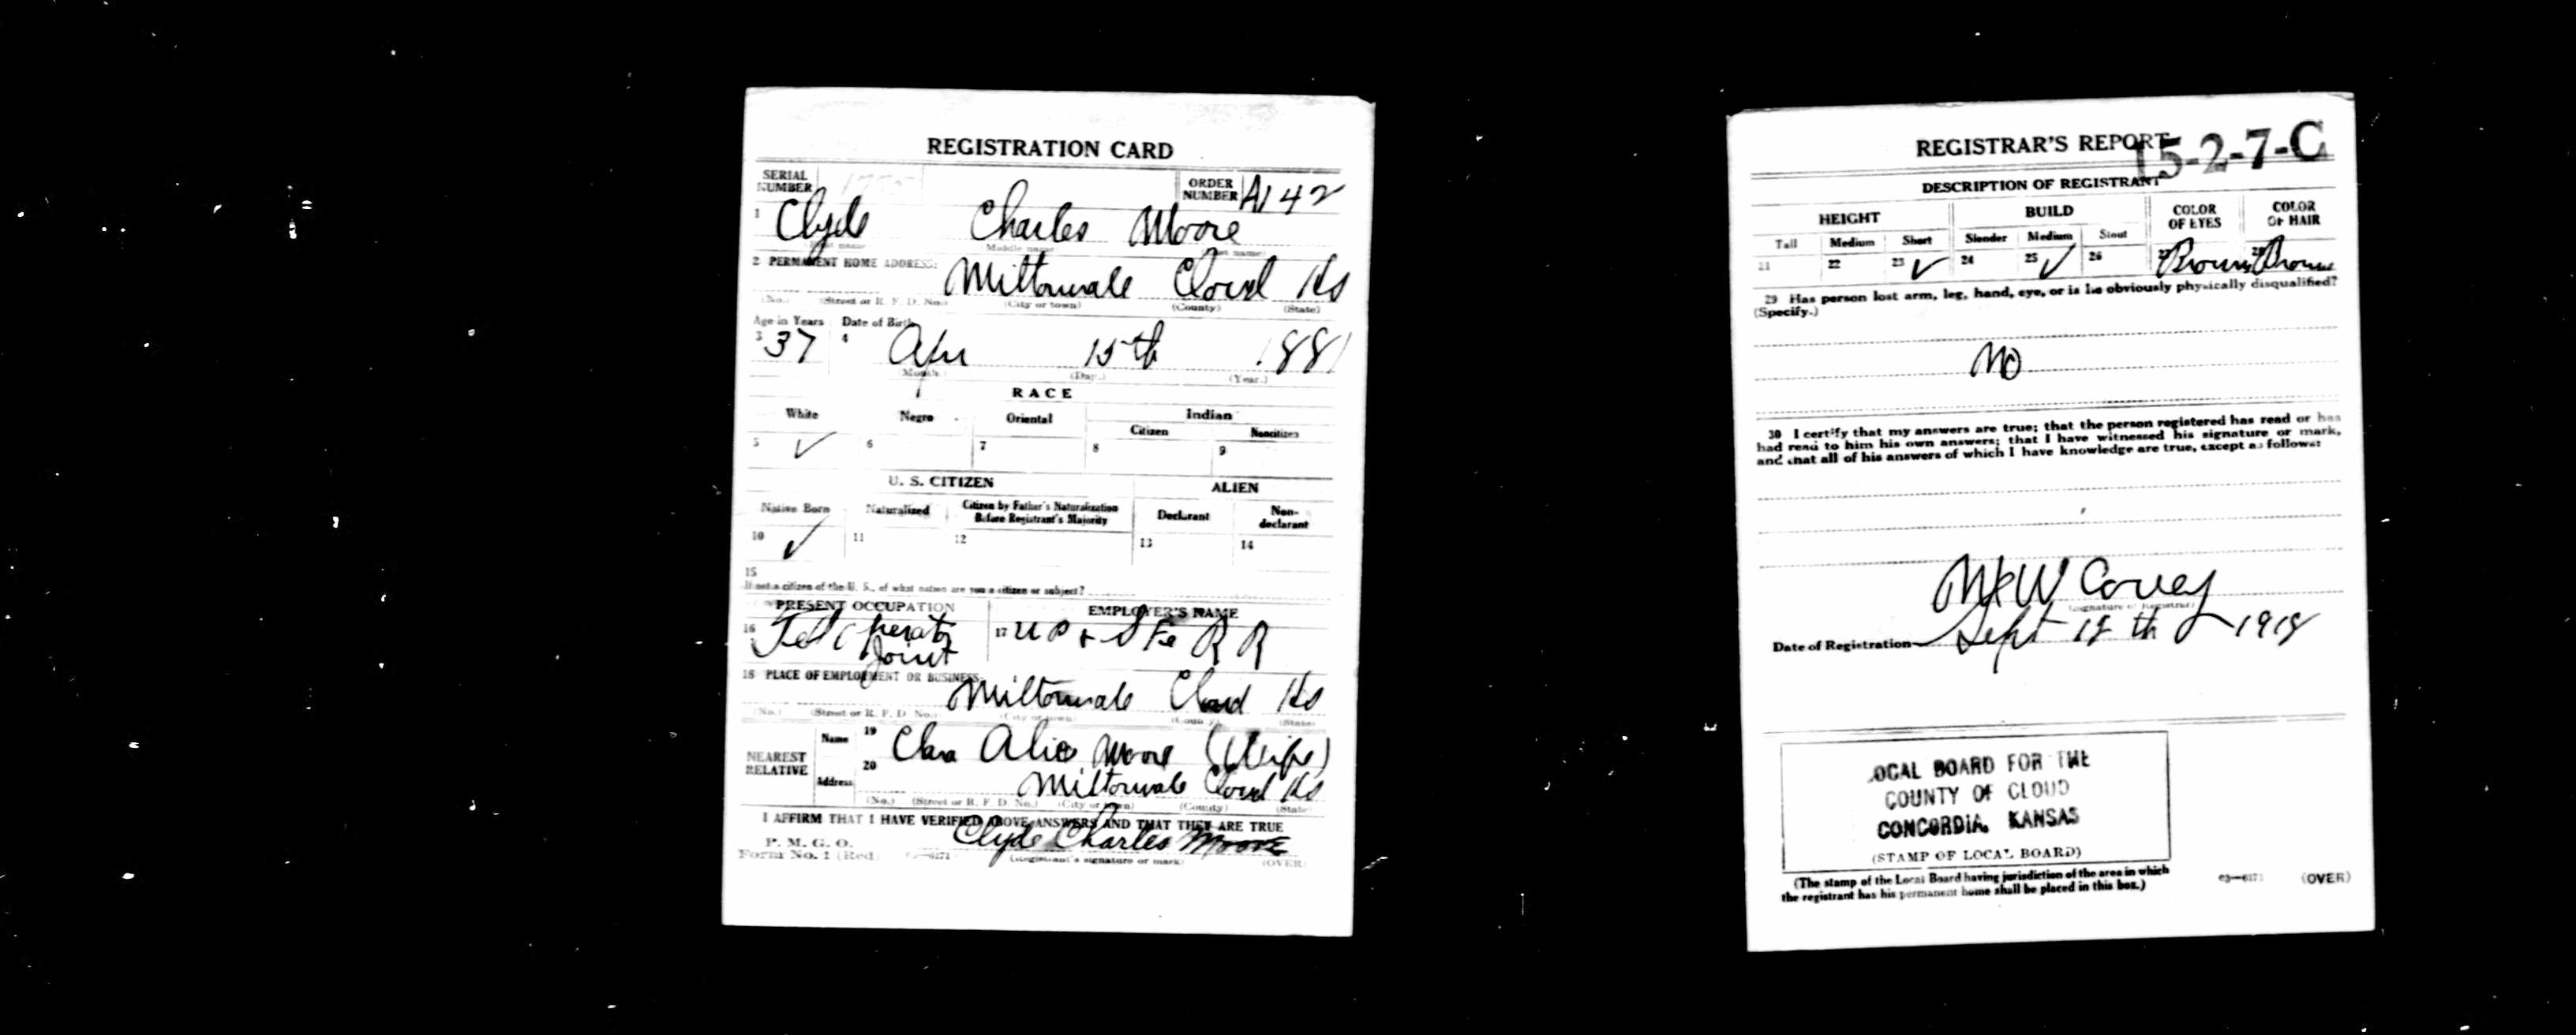 REGISTRATION CARD
SERIAL NUMBER
ORDER NUMBER A142
1 Clyde Charles Moore
(First name) (Middle name) (Last name)
2 PERMANENT HOME ADDRESS:
Miltonvale Cloud Ks
(No.) (Street or R. F. D. No.) (City or town) (County) (State)
Age in Years Date of Birth
3 37 4 Apr 15th 1881
(Month.) (Day.) (Year.)
RACE
White Negro Oriental Indian
Citizen Noncitizen
5 ✓ 6 7 8 9
U. S. CITIZEN ALIEN
Native Born Naturalized Citizen by Father's Naturalization Before Registrant's Majority Declarant Non-declarant
10 ✓ 11 12 13 14
15
If not a citizen of the U. S., of what nation are you a citizen or subject?
PRESENT OCCUPATION EMPLOYER'S NAME
16 Tel Operator 17 U P & S Fe R R
Joint
18 PLACE OF EMPLOYMENT OR BUSINESS:
Miltonvale Cloud Ks
(No.) (Street or R. F. D. No.) (City or town) (County) (State)
NEAREST RELATIVE
Name 19 Clara Alice Moore (Wife)
Address 20 Miltonvale Cloud Ks
(No.) (Street or R. F. D. No.) (City or town) (County) (State)
I AFFIRM THAT I HAVE VERIFIED ABOVE ANSWERS AND THAT THEY ARE TRUE
P. M. G. O.
Form No. 1 (Red) Clyde Charles Moore
(Registrant's signature or mark) (OVER)
REGISTRAR'S REPORT
15-2-7-C
DESCRIPTION OF REGISTRANT
HEIGHT BUILD COLOR OF EYES COLOR OF HAIR
Tall Medium Short Slender Medium Stout
21 22 23 ✓ 24 25 ✓ 26 27 Brown 28 Brown
29 Has person lost arm, leg, hand, eye, or is he obviously physically disqualified?
(Specify.)
No
30 I certify that my answers are true; that the person registered has read or has
had read to him his own answers; that I have witnessed his signature or mark,
and that all of his answers of which I have knowledge are true, except as follows:
W Covey
(Signature of Registrar)
Date of Registration Sept 12th 1918
LOCAL BOARD FOR THE
COUNTY OF CLOUD
CONCORDIA, KANSAS
(STAMP OF LOCAL BOARD)
(The stamp of the Local Board having jurisdiction of the area in which
the registrant has his permanent home shall be placed in this box.)
03—6171 (OVER)